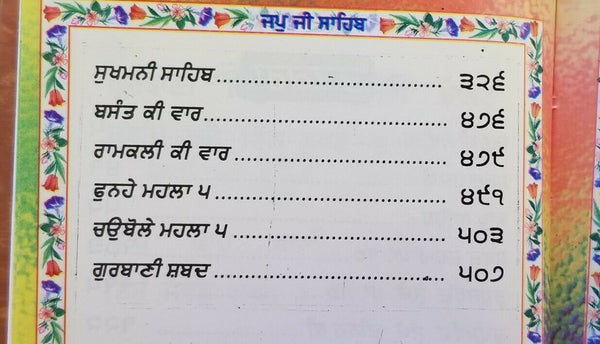 ਜਪੁ ਜੀ ਸਾਹਿਬ
ਸੁਖਮਨੀ ਸਾਹਿਬ.......................................੩੨੬
ਬਸੰਤ ਕੀ ਵਾਰ.........................................੪੭੬
ਰਾਮਕਲੀ ਕੀ ਵਾਰ....................................੪੭੯
ਫੁਨਹੇ ਮਹਲਾ ੫.......................................੪੯੧
ਚਉਬੋਲੇ ਮਹਲਾ ੫...................................੫੦੩
ਗੁਰਬਾਣੀ ਸ਼ਬਦ.......................................੫੦੭